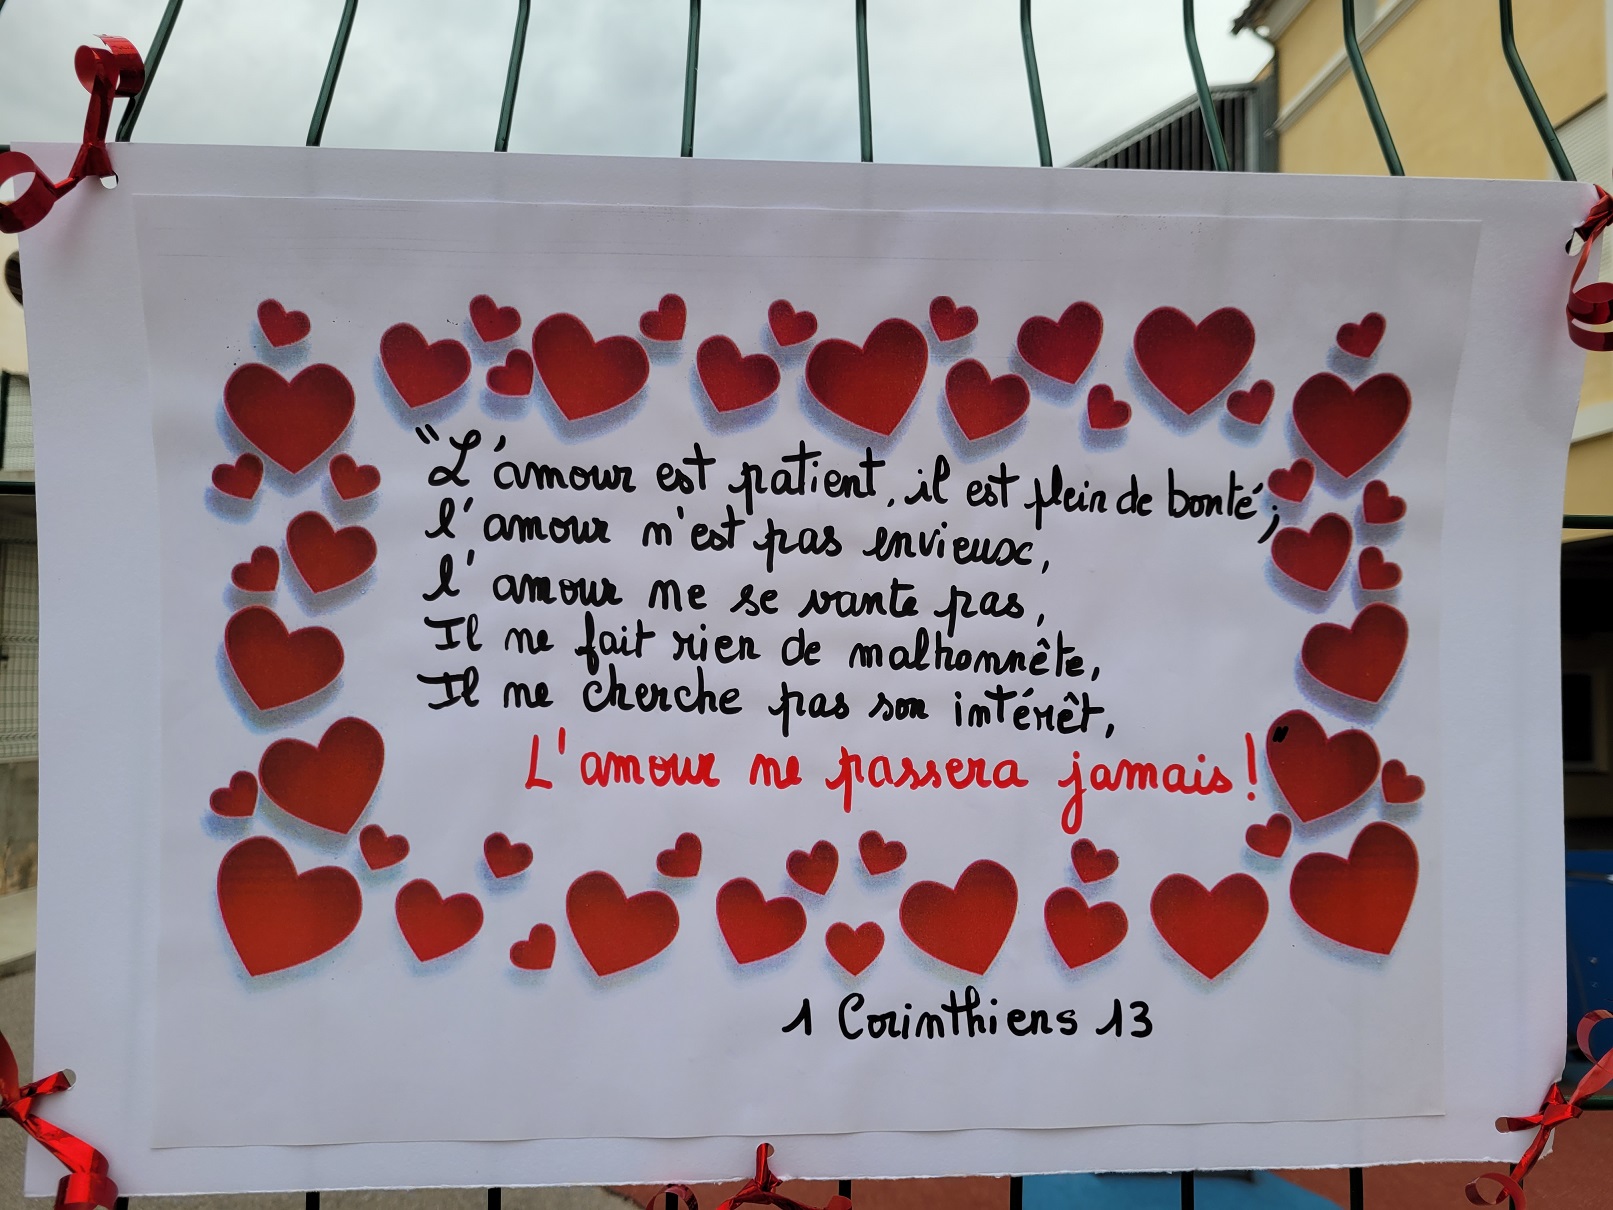 "L'amour est patient, il est plein de bonté;
l'amour n'est pas envieux,
l'amour ne se vante pas,
Il ne fait rien de malhonnête,
Il ne cherche pas son intérêt,
L'amour ne passera jamais!"
1 Corinthiens 13